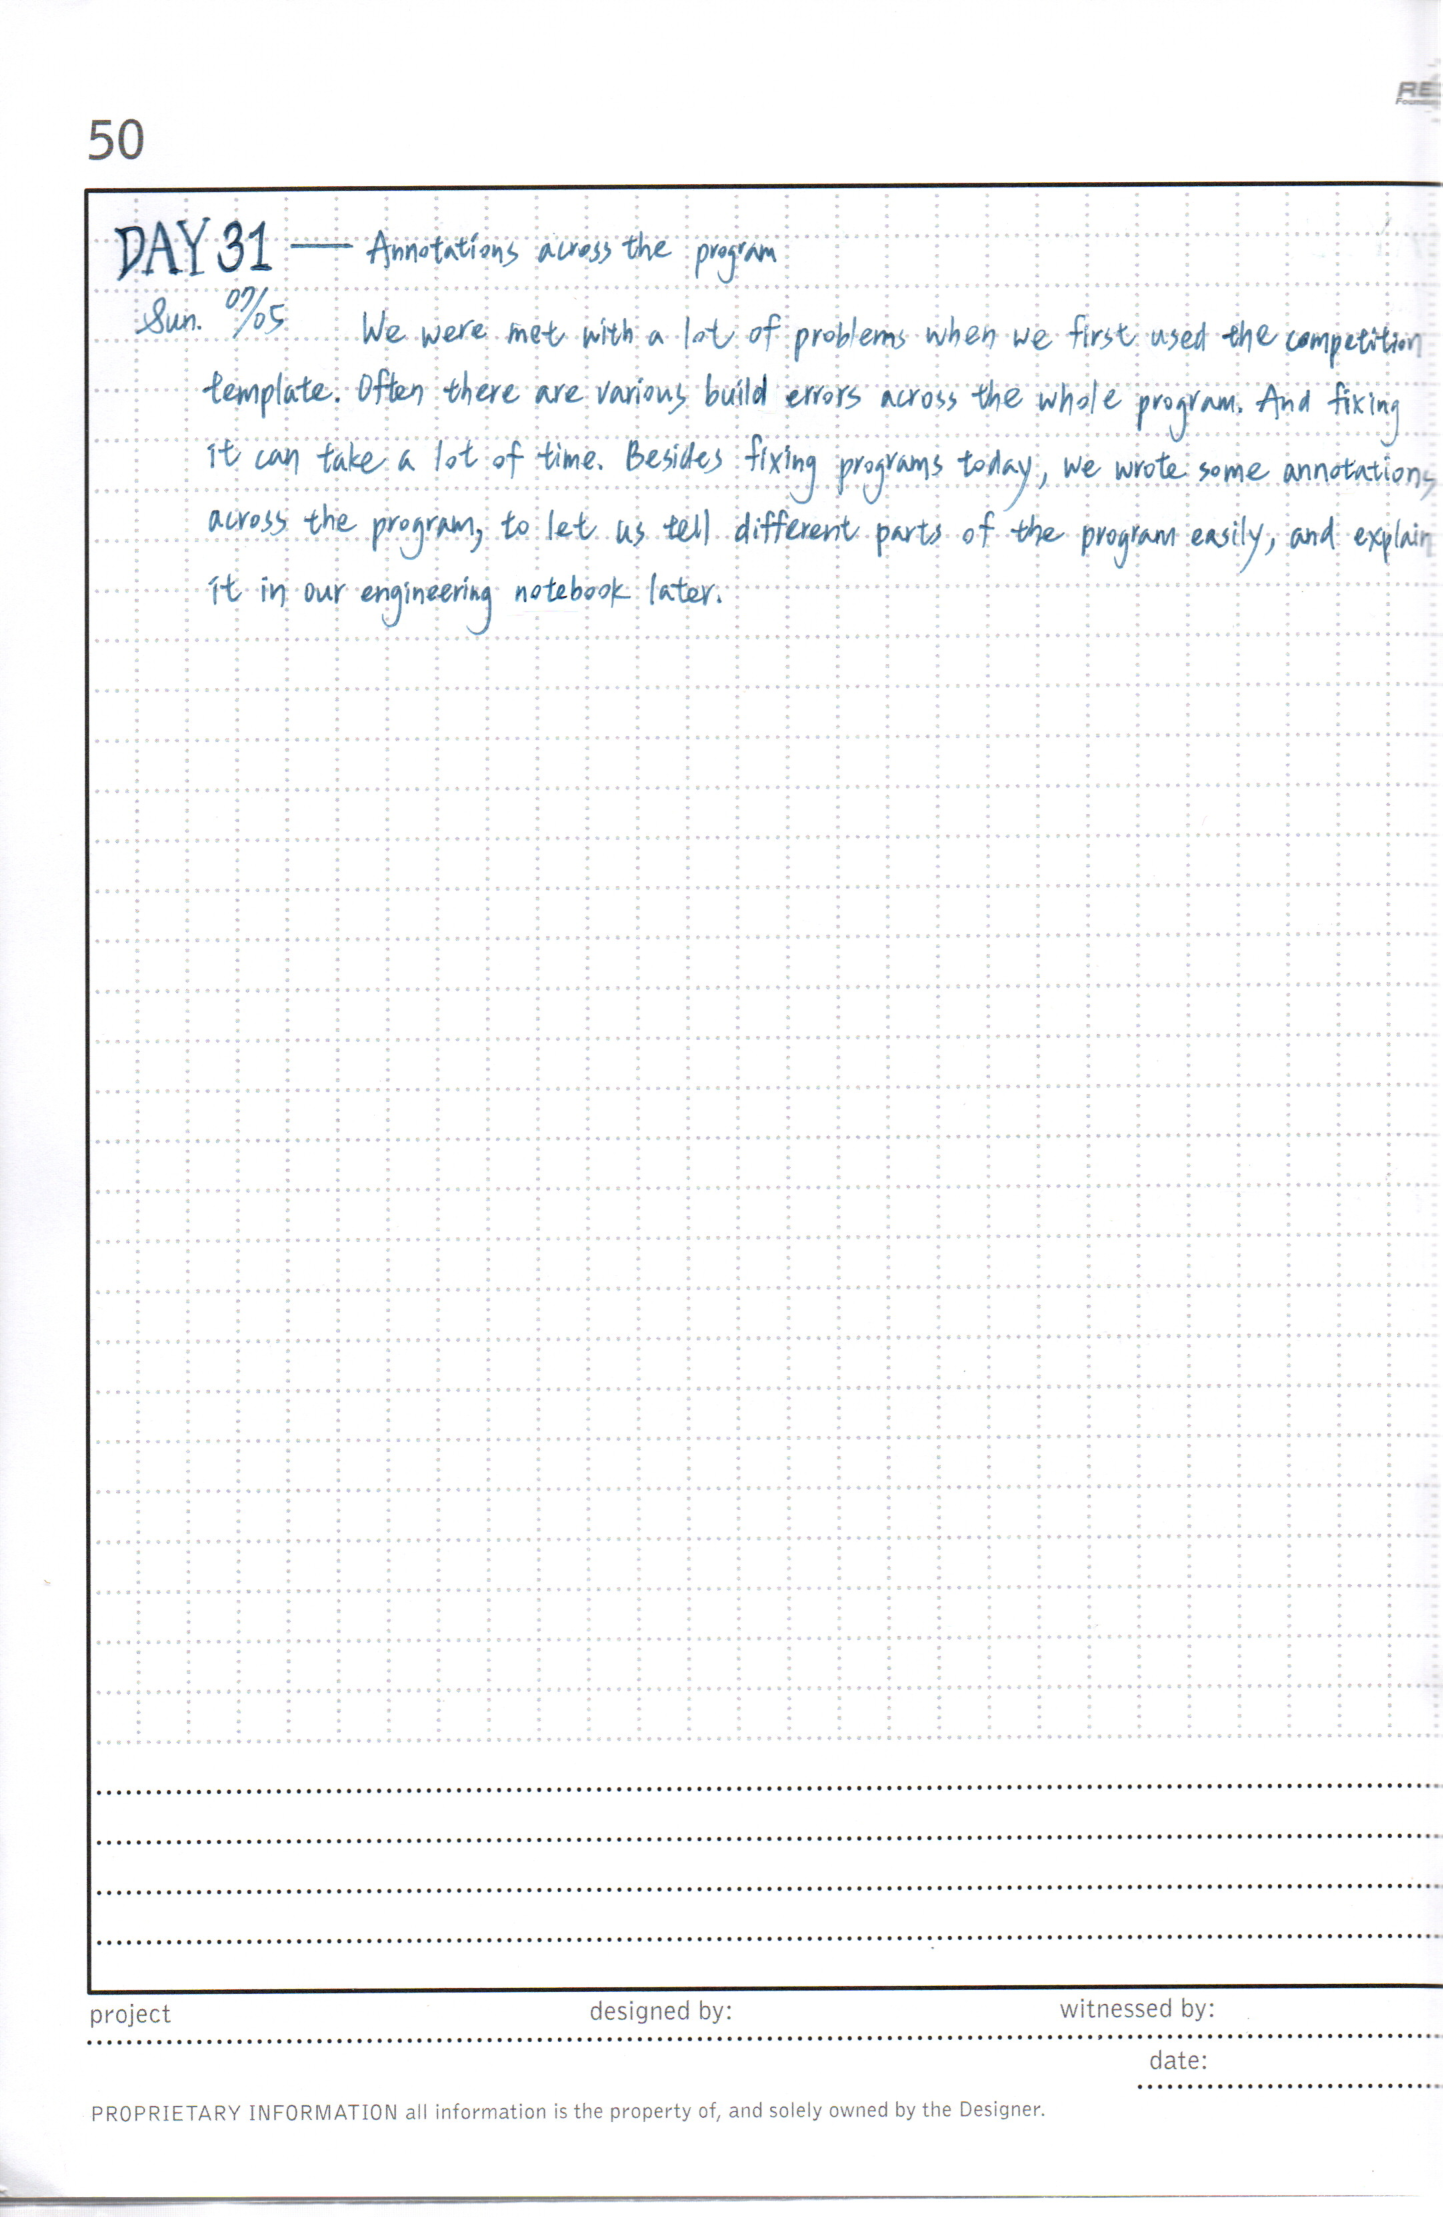 RE
50
DAY 31 — Annotations across the program
Sun. 07/05 We were met with a lot of problems when we first used the competition
template. Often there are various build errors across the whole program. And fixing
it can take a lot of time. Besides fixing programs today, we wrote some annotations
across the program, to let us tell different parts of the program easily, and explain
it in our engineering notebook later.
project designed by: witnessed by:
date:
PROPRIETARY INFORMATION all information is the property of, and solely owned by the Designer.